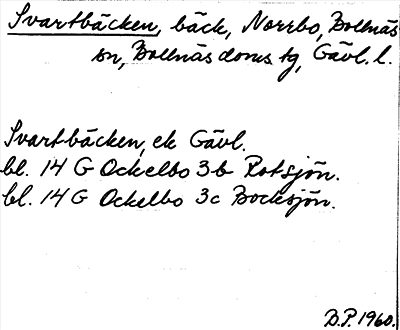 Svartbäcken, bäck, Norrbo, Bollnäs
sn, Bollnäs doms. tg, Gävl. l.
Svartbäcken, ek Gävl.
bl. 14 G Ockelbo 3b Rotsjön.
bl. 14 G Ockelbo 3c Bocksjön.
B.P. 1960.